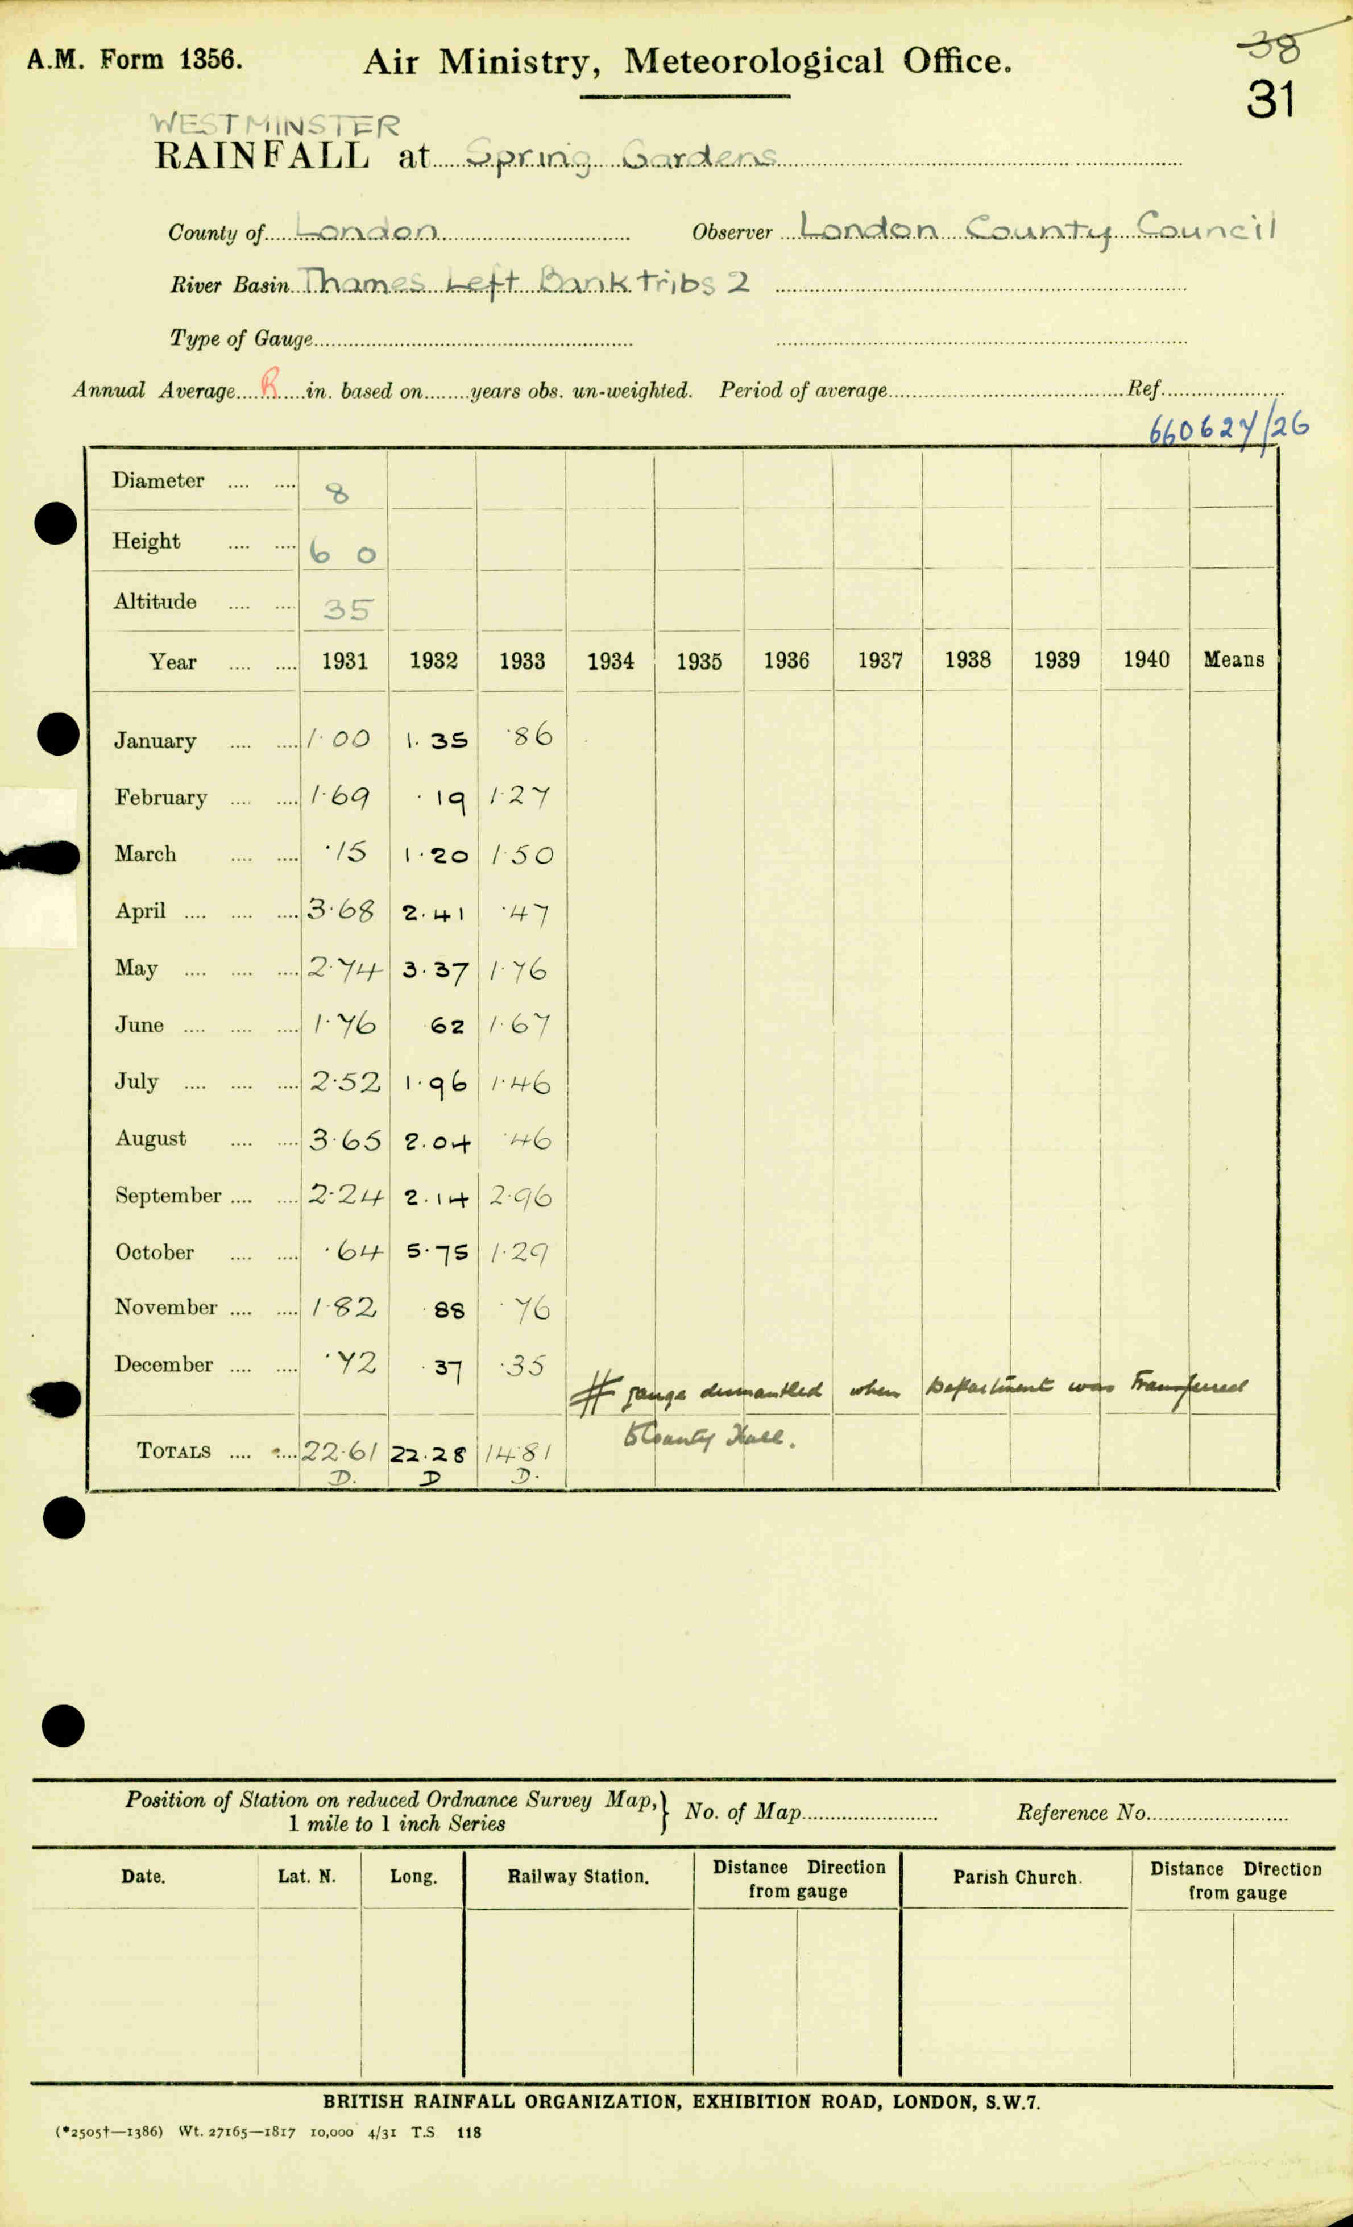 38
A.M. Form 1356. Air Ministry, Meteorological Office.
31
WESTMINSTER
RAINFALL at Spring Gardens
County of London Observer London County Council
River Basin Thames Left Bank tribs 2
Type of Gauge
Annual Average R in. based on years obs. un-weighted. Period of average Ref.
660627/26
Diameter 8
Height 6 0
Altitude 35
Year 1931 1932 1933 1934 1935 1936 1937 1938 1939 1940 Means
January 1.00 1.35 .86
February 1.69 .19 1.27
March .15 1.20 1.50
April 3.68 2.41 .47
May 2.74 3.37 1.76
June 1.76 .62 1.67
July 2.52 1.96 1.46
August 3.65 2.04 .46
September 2.24 2.14 2.96
October .64 5.75 1.29
November 1.82 .88 .76
December .72 .37 .35
# gauge dismantled when Department was Transferred
to County Hall.
TOTALS 22.61 22.28 14.81
D. D D.
Position of Station on reduced Ordnance Survey Map, } No. of Map Reference No.
1 mile to 1 inch Series
Date. Lat. N. Long. Railway Station. Distance Direction from gauge Parish Church. Distance Direction from gauge
BRITISH RAINFALL ORGANIZATION, EXHIBITION ROAD, LONDON, S.W.7.
(*2505†—1386) Wt. 27165—1817 10,000 4/31 T.S 118